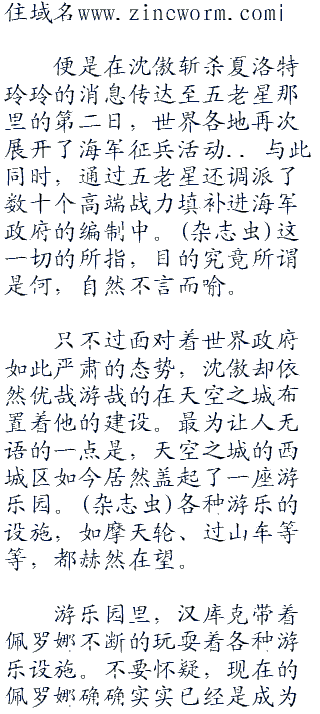 住域名www.zincworm.com¡
便是在沈傲斩杀夏洛特
玲玲的消息传达至五老星那
里的第二日，世界各地再次
展开了海军征兵活动.. 与此
同时，通过五老星还调派了
数十个高端战力填补进海军
政府的编制中。(杂志虫)这
一切的所指，目的究竟所谓
是何，自然不言而喻。
只不过面对着世界政府
如此严肃的态势，沈傲却依
然优哉游哉的在天空之城布
置着他的建设。最为让人无
语的一点是，天空之城的西
城区如今居然盖起了一座游
乐园。(杂志虫)各种游乐的
设施，如摩天轮、过山车等
等，都赫然在望。
游乐园里，汉库克带着
佩罗娜不断的玩耍着各种游
乐设施。不要怀疑，现在的
佩罗娜确确实实已经是成为